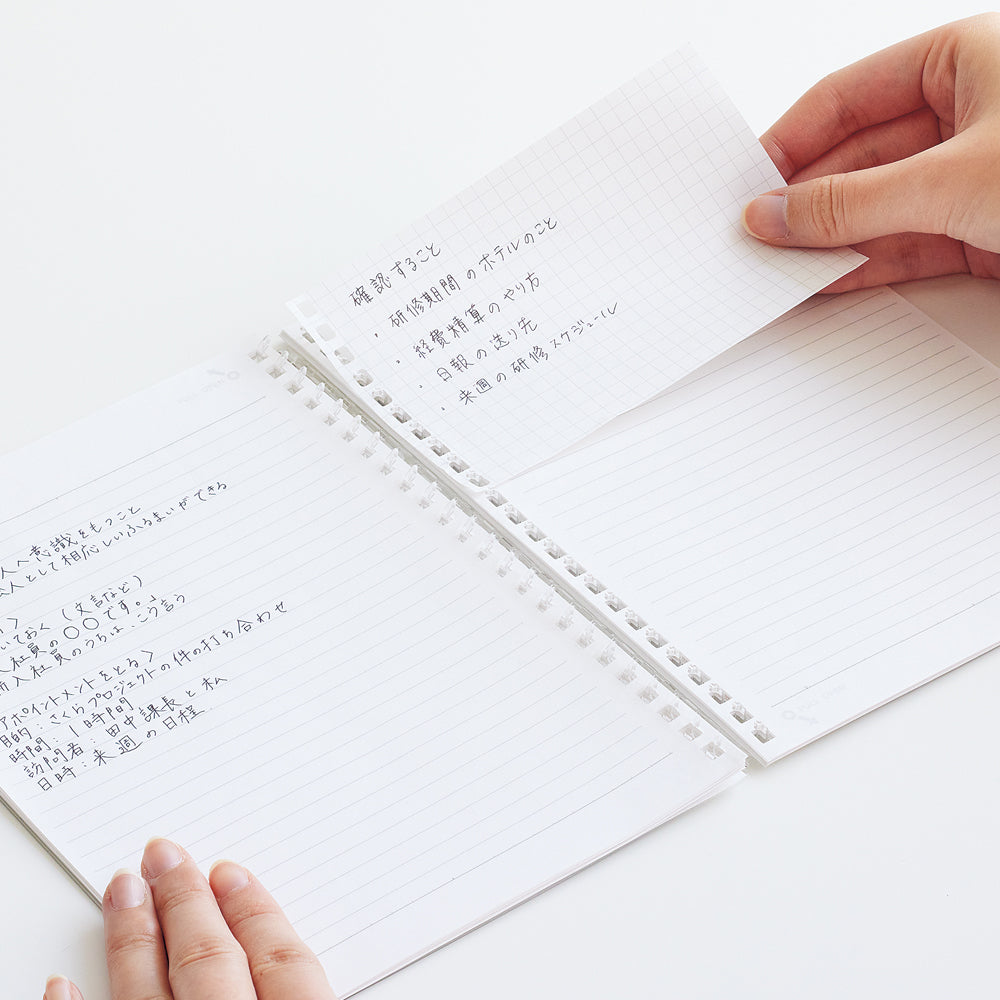 確認すること
・研修期間のホテルのこと
・経費精算のやり方
・日報の送り先
・来週の研修スケジュール
人へ意識をもつこと
人として相応しいふるまいができる
いておく（文言など）
入社員の〇〇です。」
入社員のうちは こう言う
アポイントメントをとる〉
目的：さくらプロジェクトの件の打ち合わせ
時間：1時間
訪問者：田中課長と私
日時：来週の日程